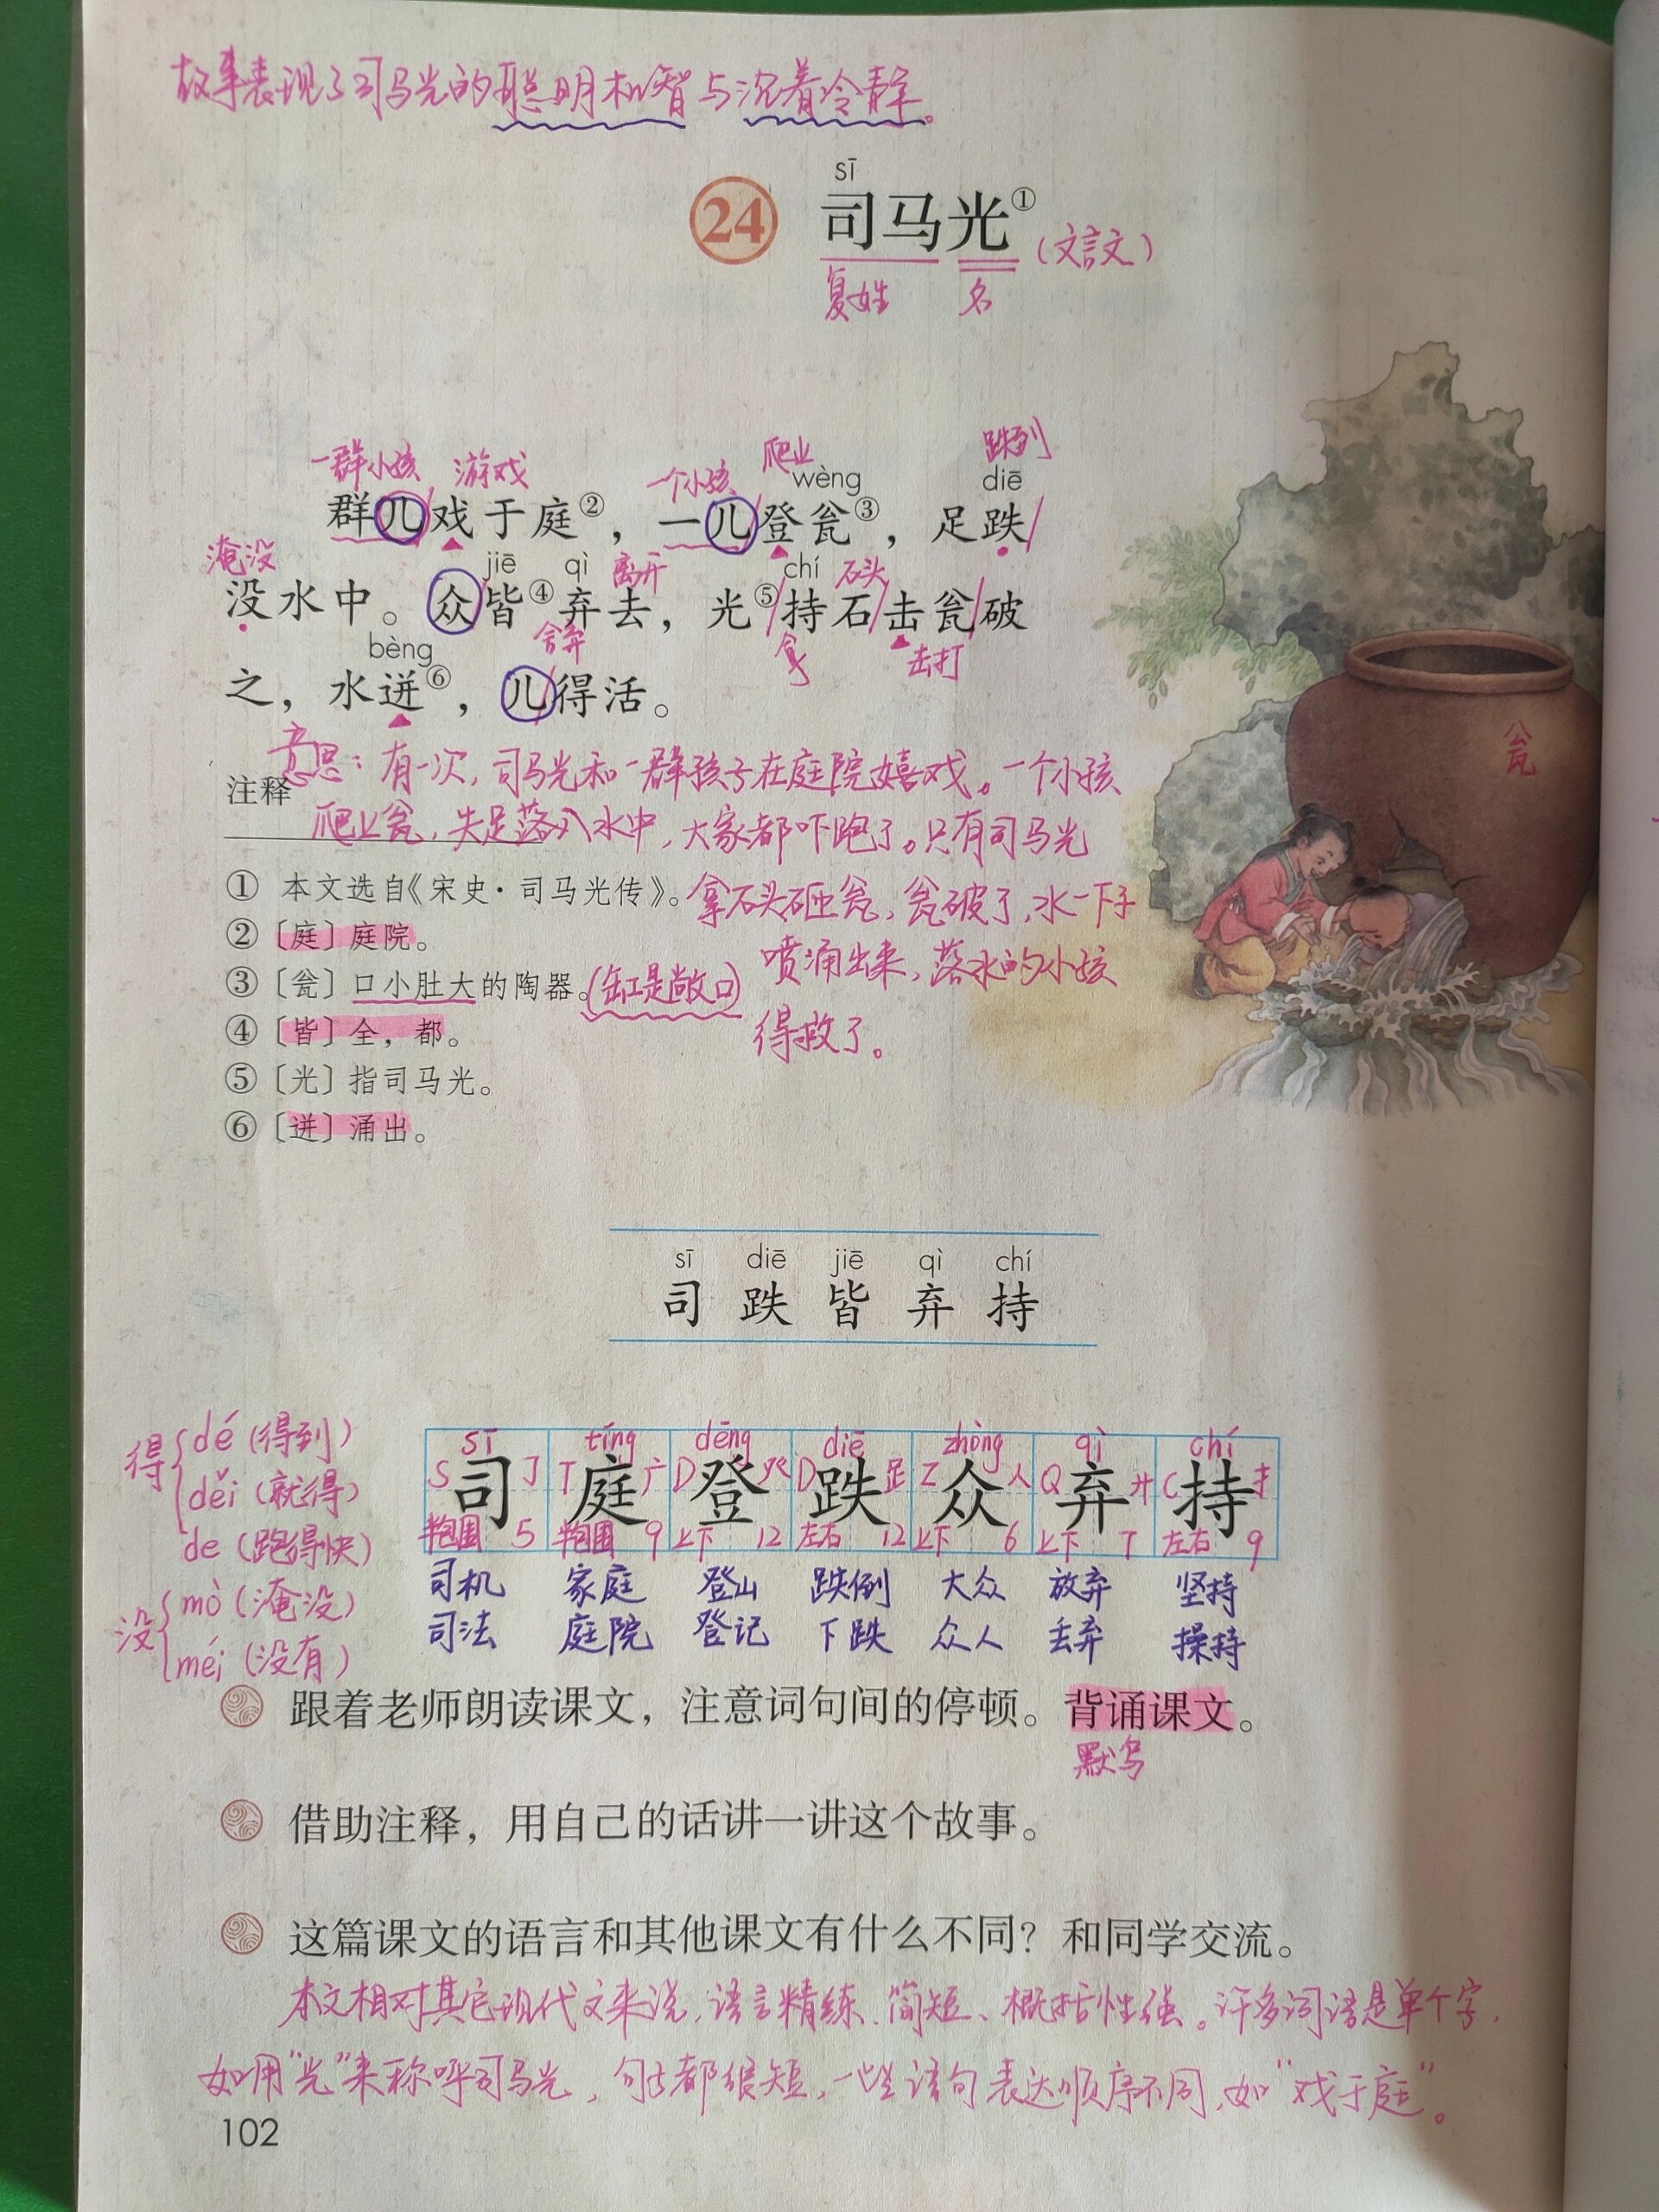 故事表现了司马光的聪明机智与沉着冷静。
sī
24 司马光①(文言文)
复姓 名
一群小孩 游戏 一个小孩 爬上 wèng 跌到 diē
群儿/戏于庭②，一儿/登瓮③，足跌/
淹没 jiē qì 离开 chí 石头
没水中。众/皆④弃去，光⑤/持石/击瓮/破
bèng 舍弃 拿 击打
之，水迸⑥，儿/得活。
意思：有一次，司马光和一群孩子在庭院嬉戏。一个小孩
注释
爬上瓮，失足落入水中，大家都吓跑了。只有司马光
① 本文选自《宋史·司马光传》。
拿石头砸瓮，瓮破了，水一下子
②〔庭〕庭院。
喷涌出来，落水的小孩
③〔瓮〕口小肚大的陶器。(缸是敞口)
得救了。
④〔皆〕全，都。
⑤〔光〕指司马光。
⑥〔迸〕涌出。
瓮
sī diē jiē qì chí
司 跌 皆 弃 持
得 dé (得到)
děi (就得)
de (跑得快)
没 mò (淹没)
méi (没有)
sī tíng dēng diē zhòng qì chí
S 司 ㇆ T 庭 广 D 登 癶 D 跌 𧾷 Z 众 人 Q 弃 廾 C 持 扌
半包围 5 半包围 9 上下 12 左右 12 上下 6 上下 7 左右 9
司机 家庭 登山 跌倒 大众 放弃 坚持
司法 庭院 登记 下跌 众人 丢弃 操持
跟着老师朗读课文，注意词句间的停顿。背诵课文。
默写
借助注释，用自己的话讲一讲这个故事。
这篇课文的语言和其他课文有什么不同？和同学交流。
本文相对其它现代文来说，语言精练、简短、概括性强。许多词语是单个字，
如用“光”来称呼司马光，句子都很短，一些语句表达顺序不同，如“戏于庭”。
102